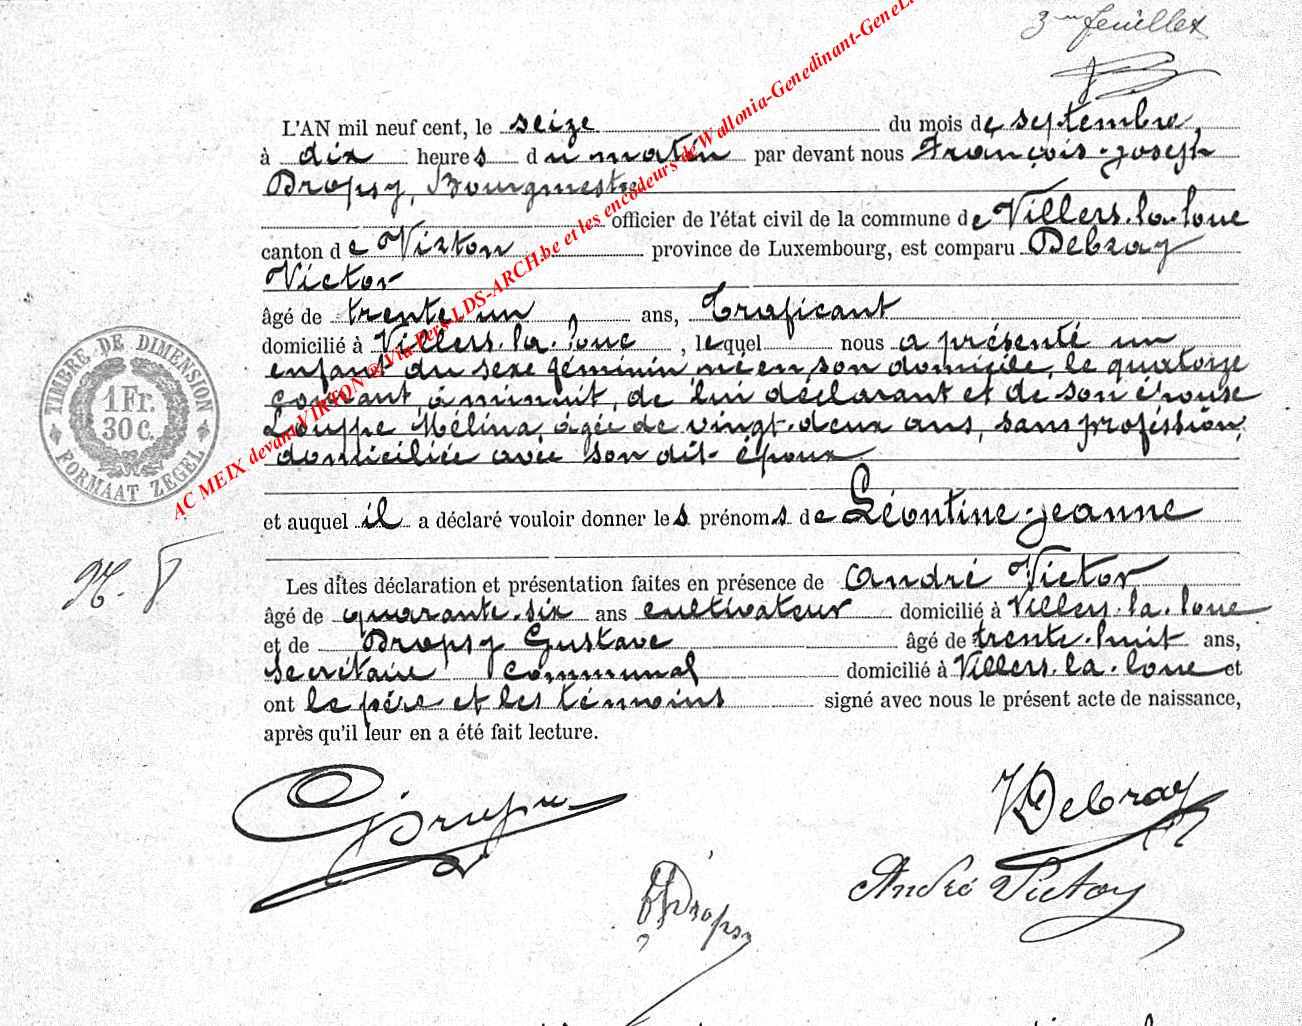 3me feuillet
L'AN mil neuf cent, le seize du mois de septembre,
à dix heures du matin par devant nous François-Joseph
Dropsy, Bourgmestre
officier de l'état civil de la commune de Villers-la-loue
canton de Virton province de Luxembourg, est comparu Debray
Victor
âgé de trente un ans, Traficant
domicilié à Villers-la-loue, lequel nous a présenté un
enfant du sexe féminin, né en son domicile, le quatorze
courant, à minuit, de lui déclarant et de son épouse
Louppe Mélina, âgée de vingt-deux ans, sans profession,
domiciliée avec son dit époux
et auquel il a déclaré vouloir donner les prénoms de Léontine-Jeanne
Les dites déclaration et présentation faites en présence de André Victor
âgé de quarante-six ans cultivateur domicilié à Villers-la-loue
et de Dropsy Gustave âgé de trente-huit ans,
secrétaire communal domicilié à Villers-la-loue et
ont le père et les témoins signé avec nous le présent acte de naissance,
après qu'il leur en a été fait lecture.
TIMBRE DE DIMENSION
1 Fr.
30 C.
FORMAAT ZEGEL
AC MEIX devant VIRTON @ Via Pers-LDS-ARCH.be et les encodeurs de Wallonia-Genedinant-GeneL
GDropsy
VDebray
André Victor
Dropsy